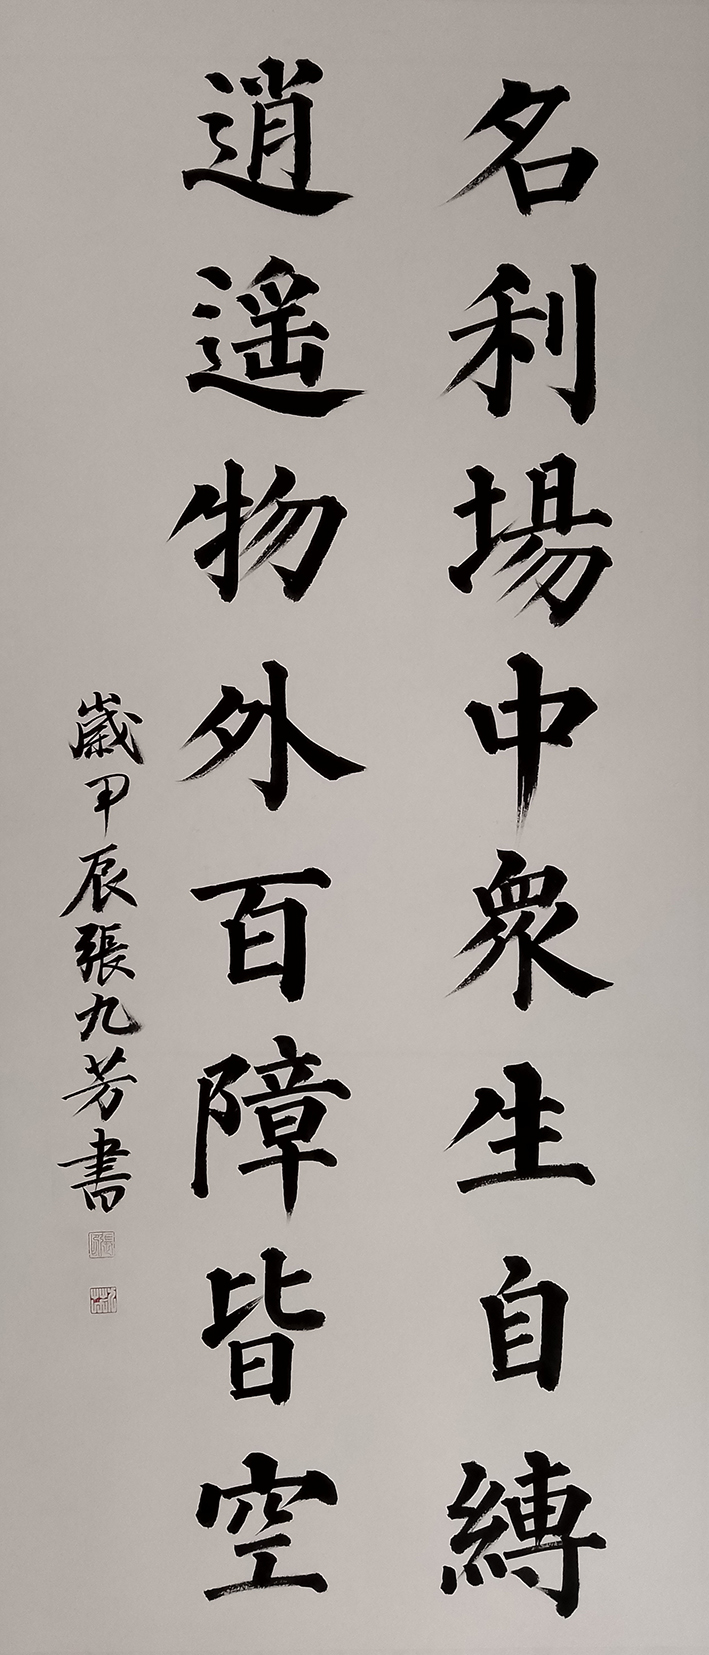 名利場中衆生自縛
逍遥物外百障皆空
歲甲辰張九芳書